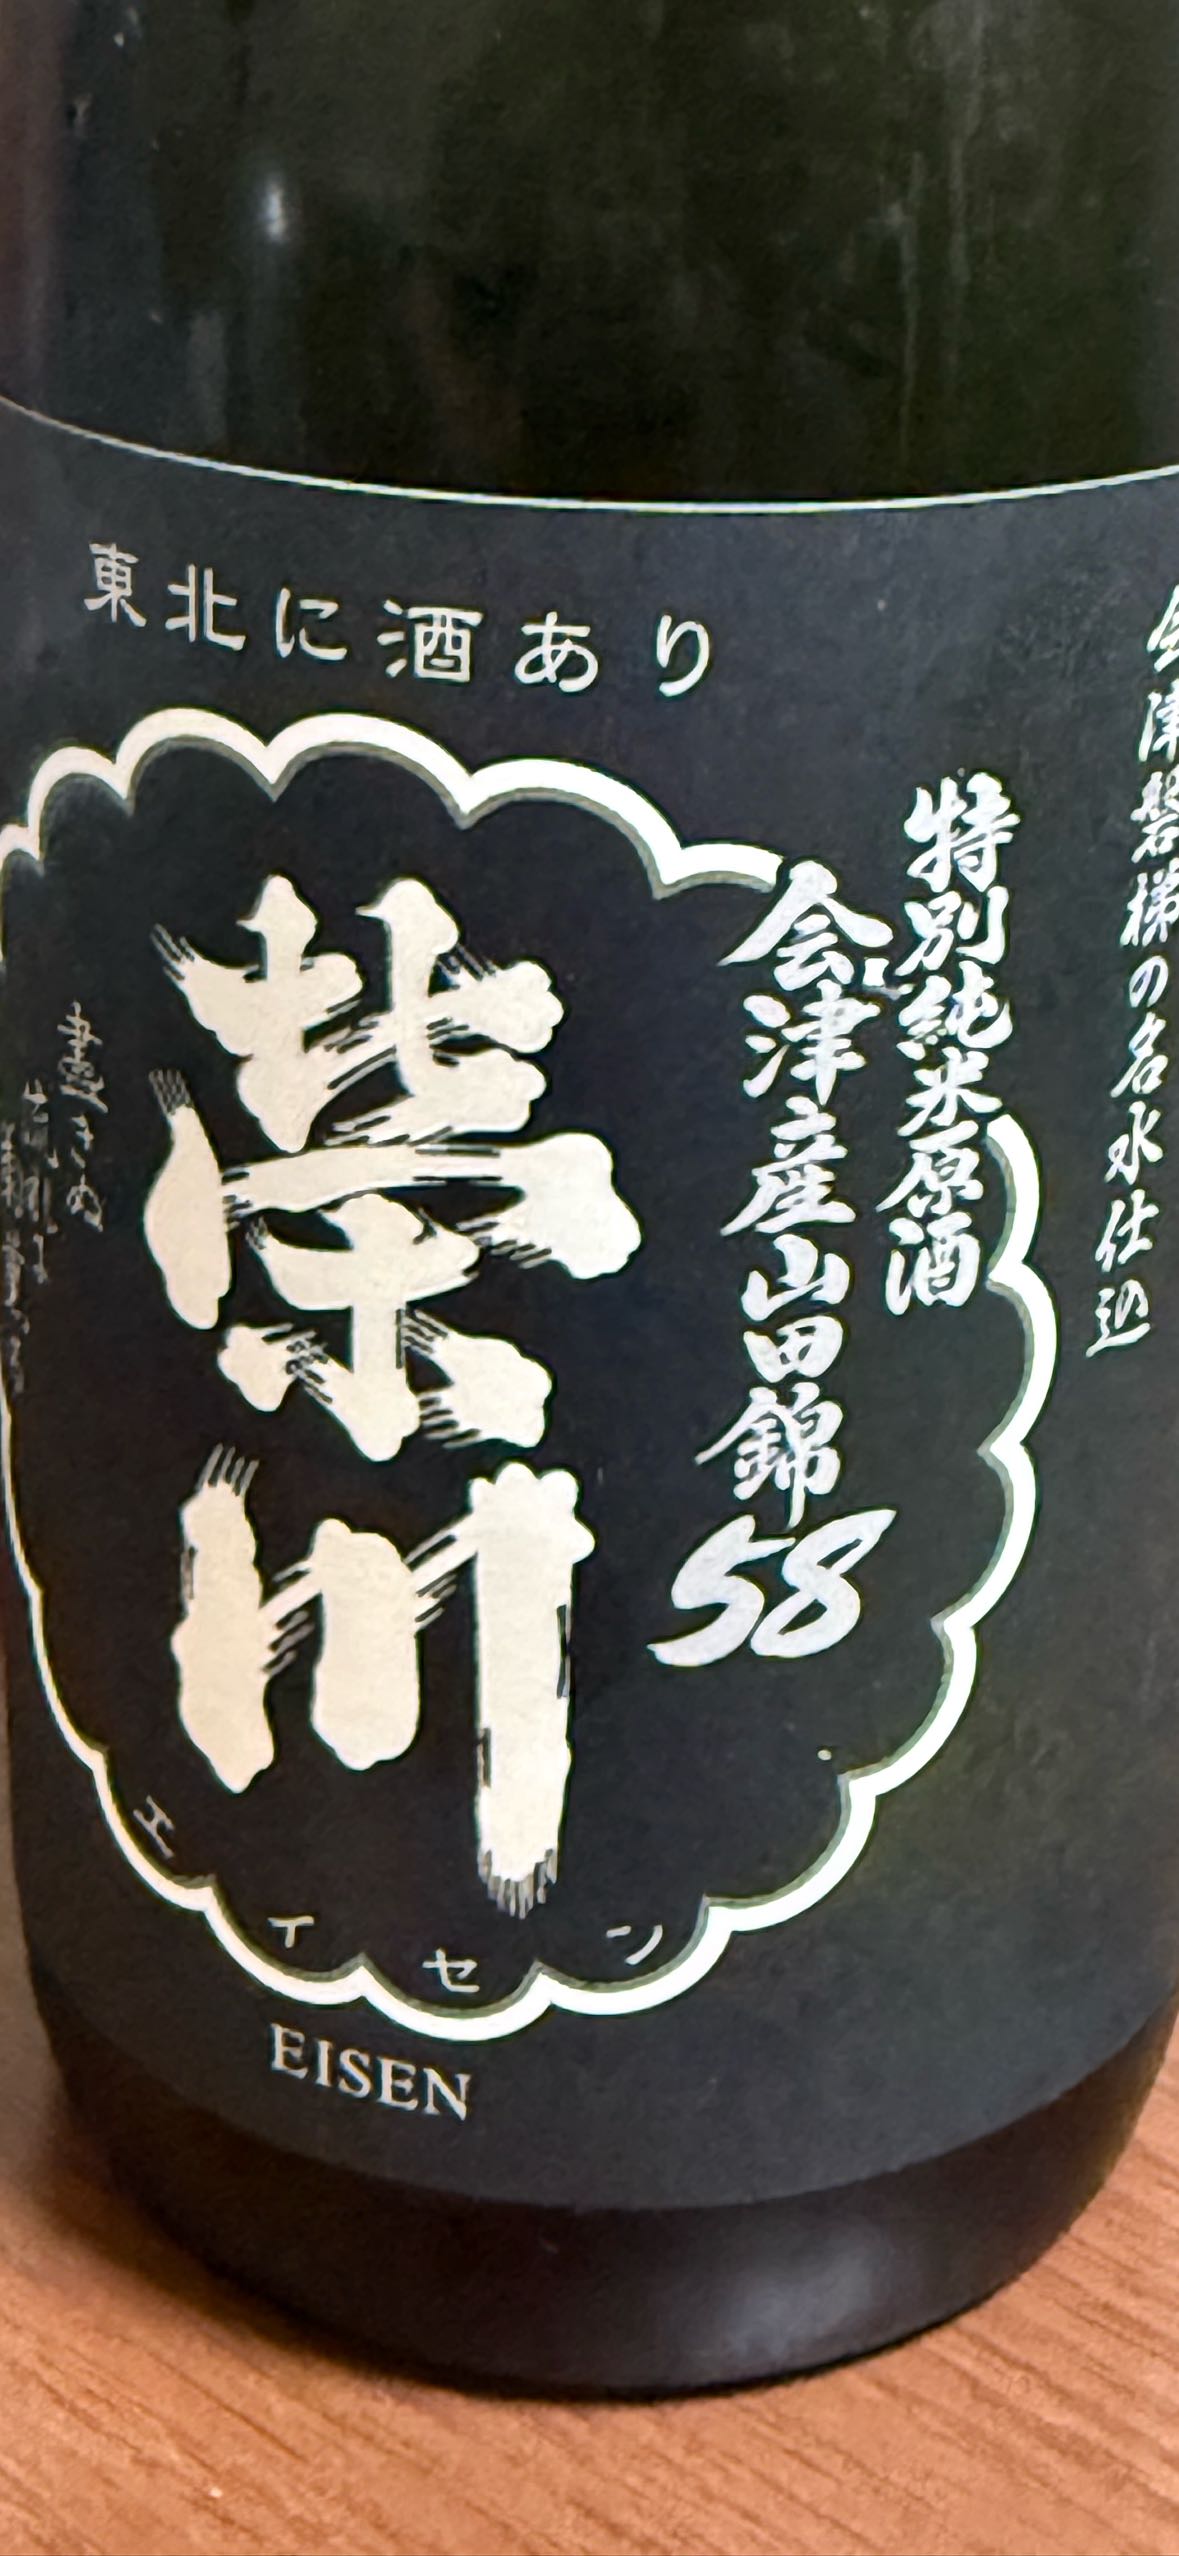 東北に酒あり
会津磐梯の名水仕込
特別純米原酒
会津産山田錦58
榮川
エイセン
EISEN